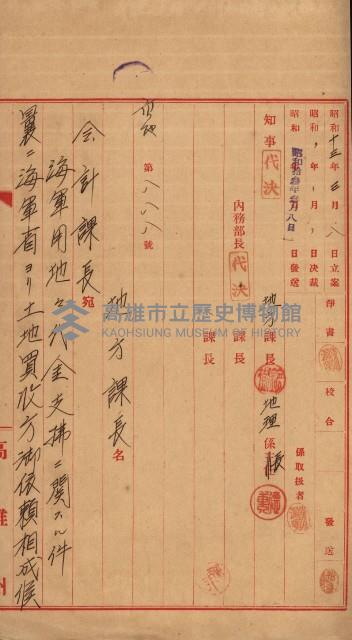 昭和十三年三月八日立案
昭和 年 月 日決裁
昭和拾參年參月八日發送
淨書
校合
發送
係取扱者
知事 代決
內務部長 代決
地方課長
地理係長
課長
課長
第 號
地方課長名
会計課長宛
海軍用地々代金支拂ニ関スル件
曩ニ海軍省ヨリ土地買收方御依頼相成候
高雄州
高雄市立歷史博物館
KAOHSIUNG MUSEUM OF HISTORY